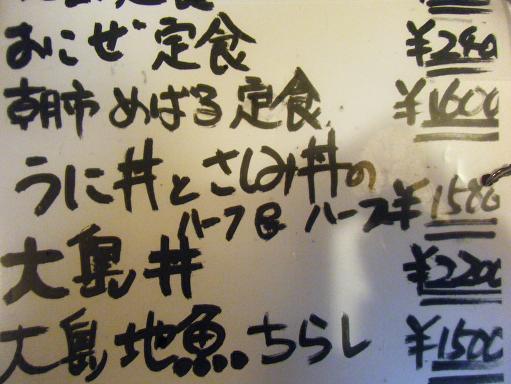 おこぜ定食 ¥2400
朝市めばる定食 ¥1600
うに丼とさしみ丼の
ハーフ&ハーフ ¥1500
大島丼 ¥2200
大島地魚ちらし ¥1500